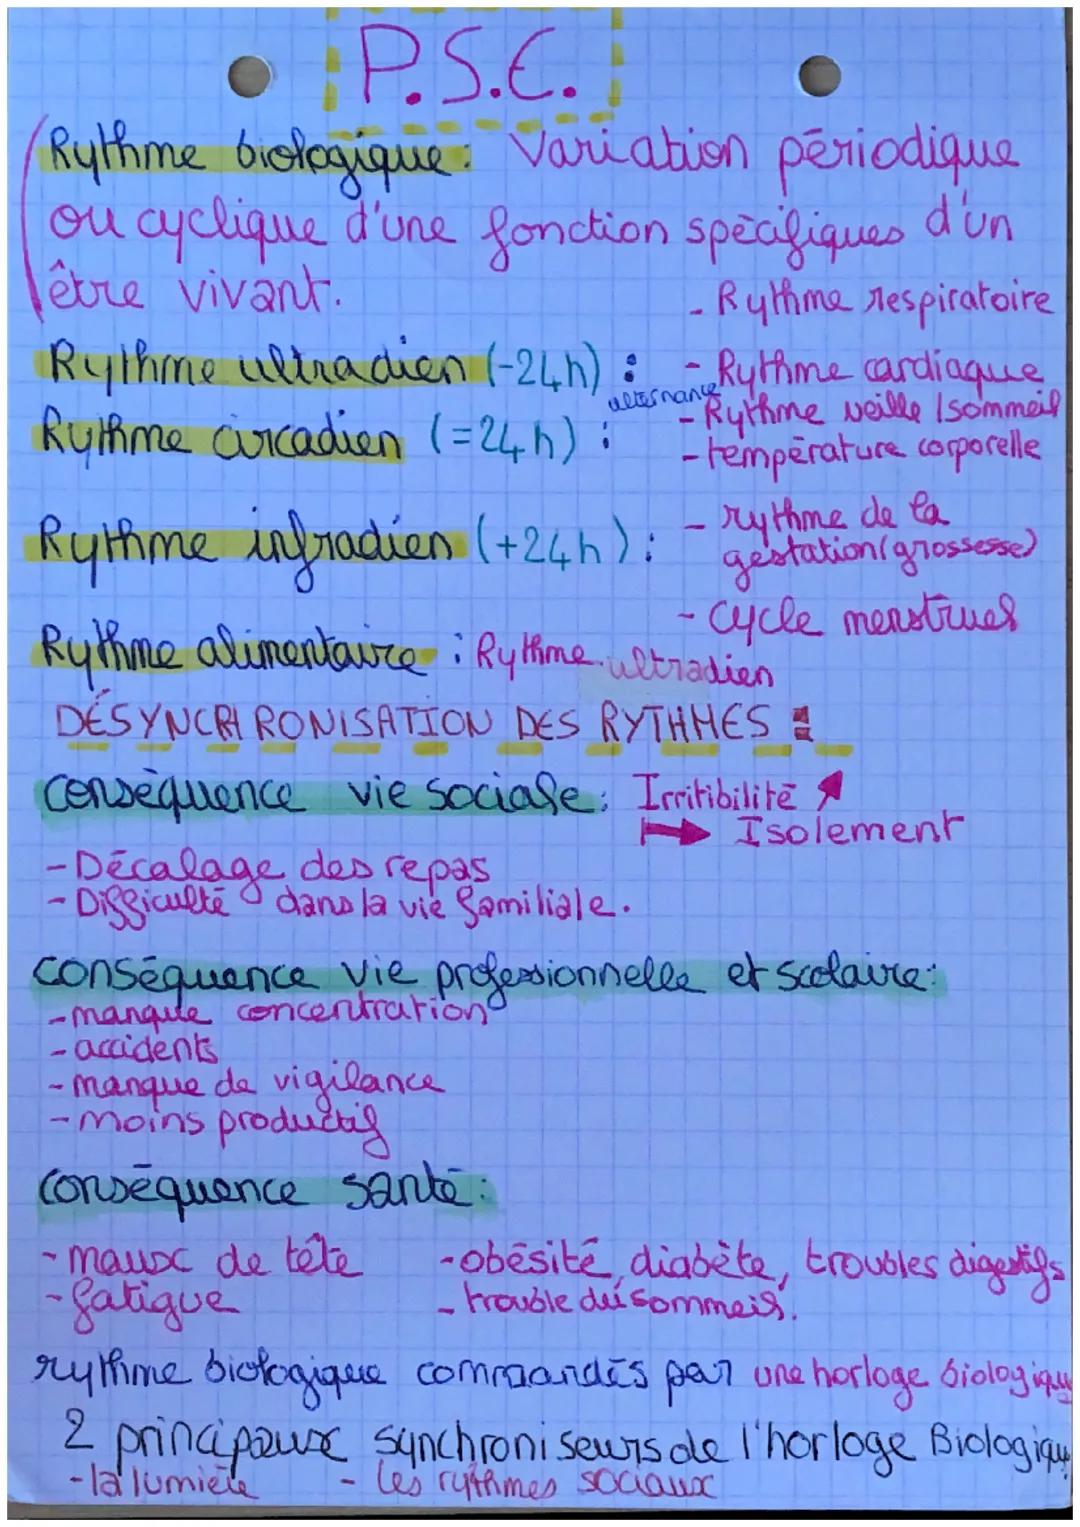 P.S.E.
Rythme biologique : Variation périodique
ou cyclique d'une fonction spécifiques d'un
être vivant.
- Rythme respiratoire
Rythme ultradien (-24h) : - Rythme cardiaque
alternance
Rythme circadien (=24h) : - Rythme veille / sommeil
- température corporelle
Rythme infradien (+24h) : - rythme de la
gestation (grossesse)
- Cycle menstruel
Rythme alimentaire : Rythme ultradien
DÉSYNCHRONISATION DES RYTHMES :
conséquence vie sociale : Irritibilité ↗
↦ Isolement
- Décalage des repas
- Difficulté dans la vie familiale.
conséquence vie professionnelle et scolaire :
- manque concentration
- accidents
- manque de vigilance
- moins productif
conséquence santé :
- maux de tête - obésité, diabète, troubles digestifs
- fatigue - trouble du sommeil.
rythme biologique commandés par une horloge biologique
2 principaux synchroniseurs de l'horloge Biologique
- la lumière - les rythmes sociaux